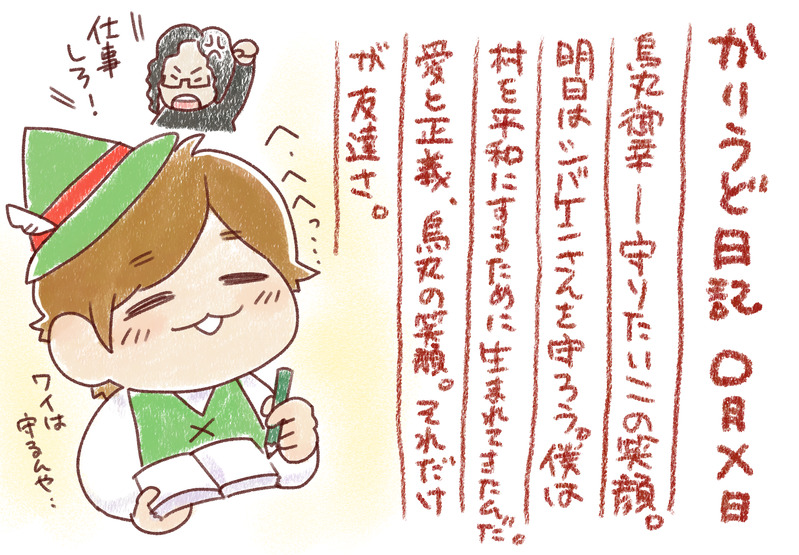 かりうど日記 〇月×日
烏丸御幸ー守りたいこの笑顔。
明日はシバケニさんを守ろう。僕は
村を平和にするために生まれてきたんだ。
愛と正義、烏丸の笑顔。それだけ
が友達さ。
仕事
しろ！
へ、へへっ…
ワイは
守るんや…